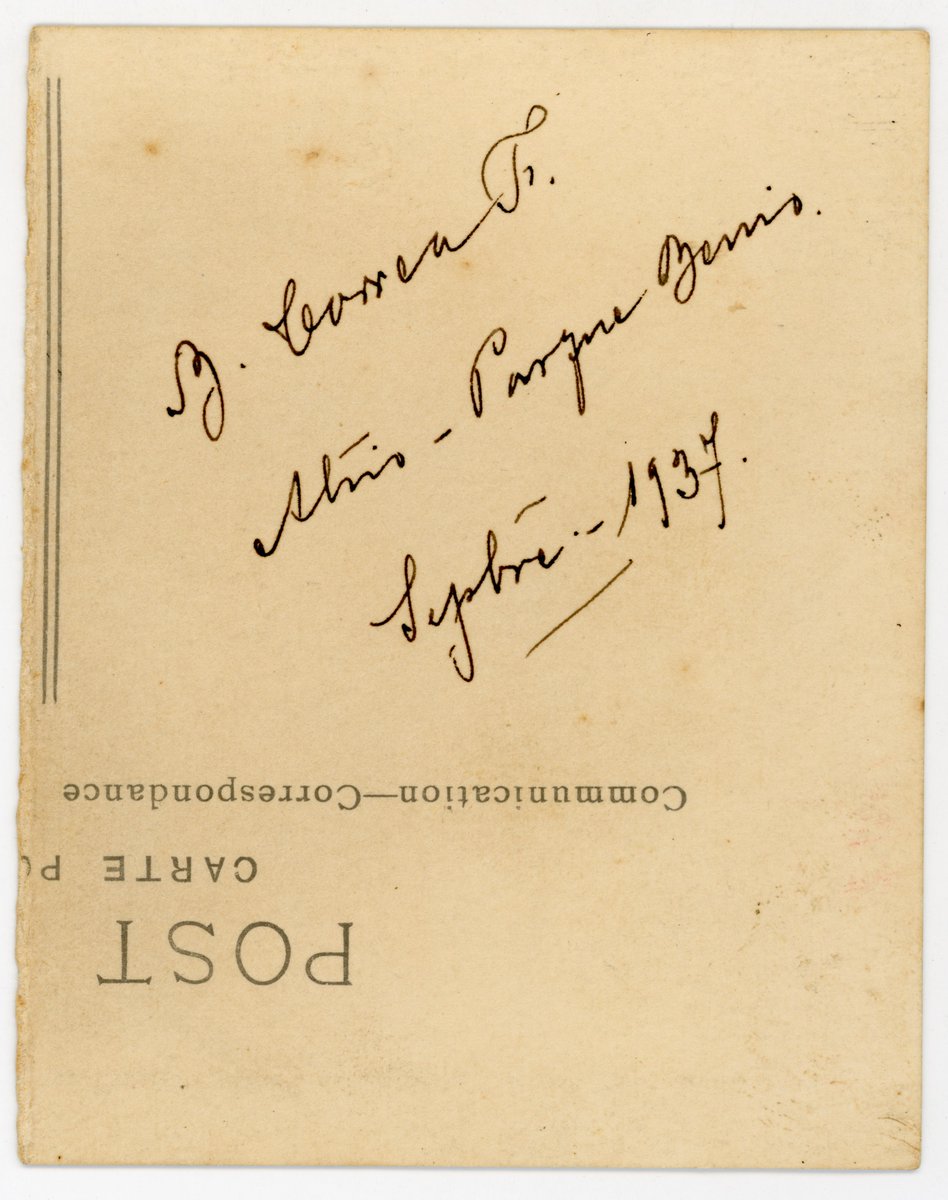 B. Correa F.
Atrio - Parque Benis.
Sepbre - 1937.
Communication—Correspondance
CARTE PO
POST